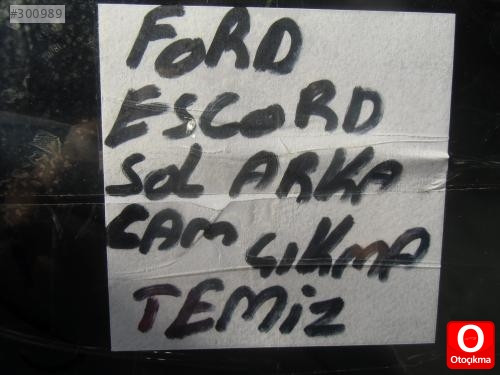 #300989
FORD
ESCORD
SOL ARKA
CAM ÇIKMA
TEMİZ
O
Otoçıkma